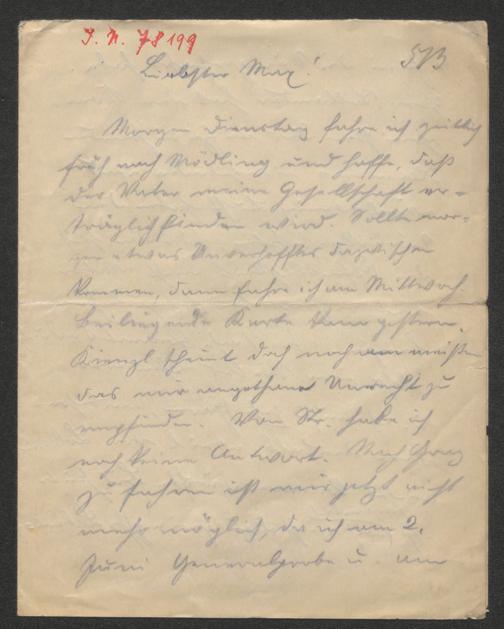 I. N. 78199
Liebster Max!
Morgen Dienstag fahre ich zeitlich
früh nach Mödling und hoffe, daß
der Vater meine Gesellschaft er-
träglich finden wird. Sollte mor-
gen etwas Unverhofftes dazwischen
kommen, dann fahre ich am Mittwoch.
Beiliegende Karte kam gestern.
Kienzl scheint doch noch am meisten
das mir angethane Unrecht zu
empfinden. Von Str. habe ich
noch keine Antwort. Nach Graz
zu fahren ist mir jetzt nicht
mehr möglich, da ich am 2.
Juni Generalprobe u. am